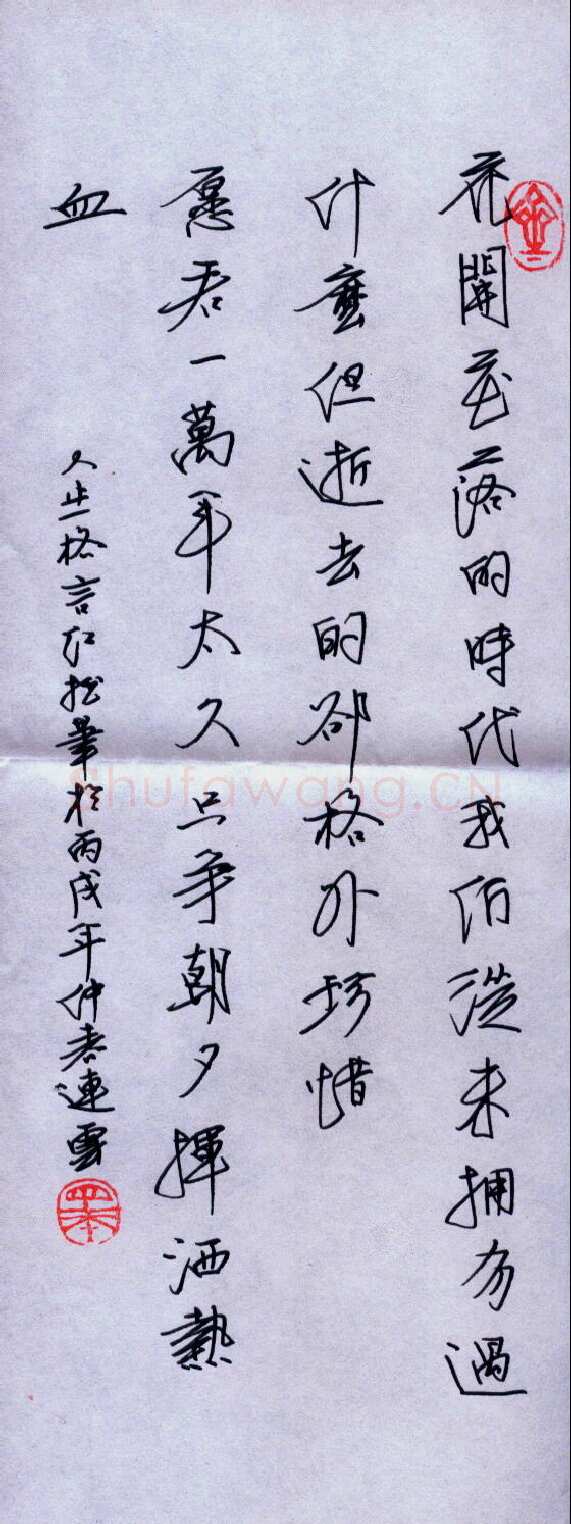 花開花落的時代我們從未擁有過
什麼但逝去的卻格外珍惜
愿君一萬年太久只爭朝夕揮洒熱
血
格言紅松筆於丙戌年仲春連雲
Shufawang.CN